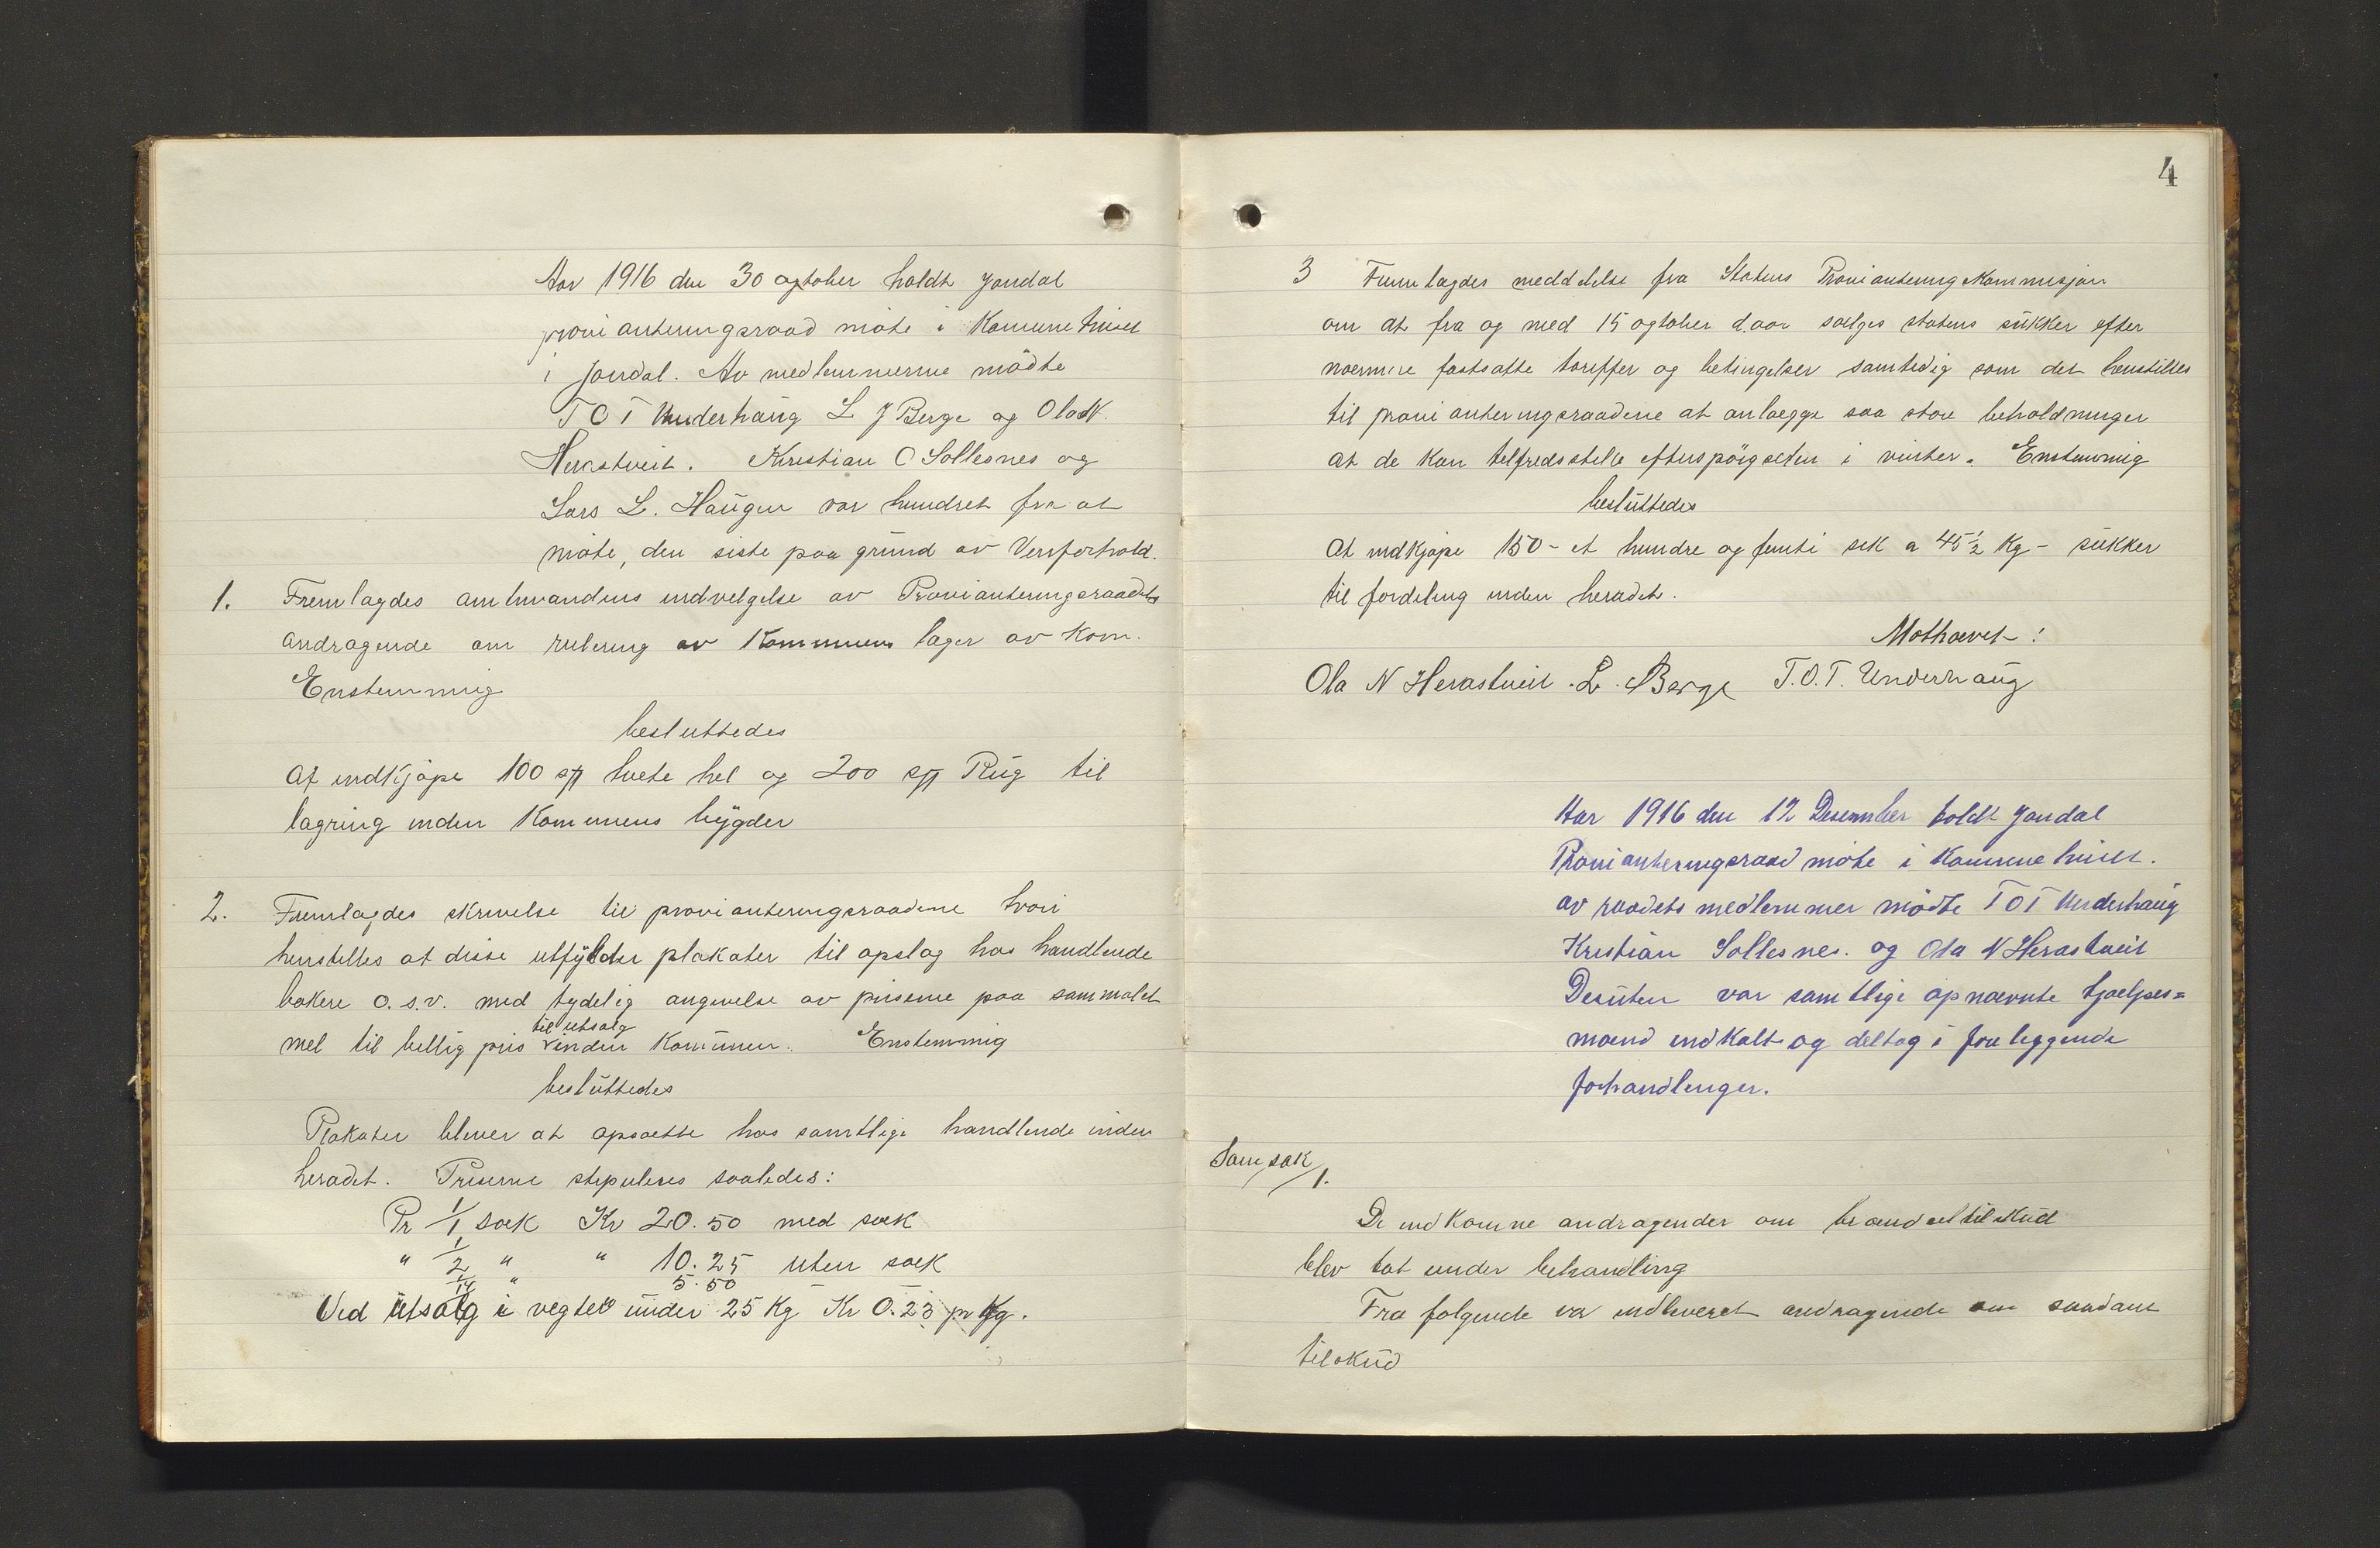 Aar 1916 den 30 ogtober holdt Jondal
provianteringsraad möte i Komunehuset
i Jondal. Av medlemmerne mödte
T O T Underhaug L J Berge og Ola N.
Herastveit. Kristian O Sollesnes og
Lars L. Haugen var hindret fra at
möte, den siste paa grund av Verforhold.
1. Fremlagdes amtmandens indvelgelse av Provianteringsraadets
andragende om rulering av Kommunens lager av korn.
Enstemmig
besluttedes
At indkjöpe 100 sp hvete hel og 200 sp Rug til
lagring inden Kommunens bygder
2. Fremlagdes skrivelse til provianteringsraadene hvori
henstilles at disse utfylder plakater til opslag hos handlende
bakere o.s.v. med tydelig angivelse av priserne paa sammalet
til utsalg
mel til billig pris inden Kommunen. Enstemmig
besluttedes
Plakater bliver at opsætte hos samtlige handlende inden
heradet. Priserne stipuleres saaledes:
Pr 1/1 sæk Kr 20.50 med sæk
" 1/2 " " 10.25 uten sæk
1/4 " 5.50
Ved utsalg i vegter under 25 Kg Kr 0.23 pr Kg.
4
3 Fremlagdes meddelelse fra Statens Provianteringskommisjon
om at fra og med 15 ogtober d.aar sælges statens sukker efter
nærmere fastsatte tariffer og betingelser samtidig som det henstilles
til provianteringsraadene at anlægge saa store beholdninger
at de kan tilfredsstille efterspörgselen i vinter. Enstemmig
besluttedes
At indkjöpe 150 - et hundre og femti sek a 45 1/2 Kg - sukker
til fordeling inden heradet.
Mothævet:
Ola N Herastveit. L. J Berge T.O.T. Underhaug
Aar 1916 den 12 Desember holdt Jondal
Provianteringsraad möte i Kommunehuset.
av raadets medlemmer mödte T O T Underhaug
Kristian Sollesnes. og Ola N Herastveit
Desuten var samtlige opnævnte hjælpes=
mænd indkalt og deltog i foreliggende
forhandlinger.
Som sak
1.
De indkomne andragender om brændseltilskud
blev tat under behandling
Fra folgende var indleveret andragende om saadant
tilskud